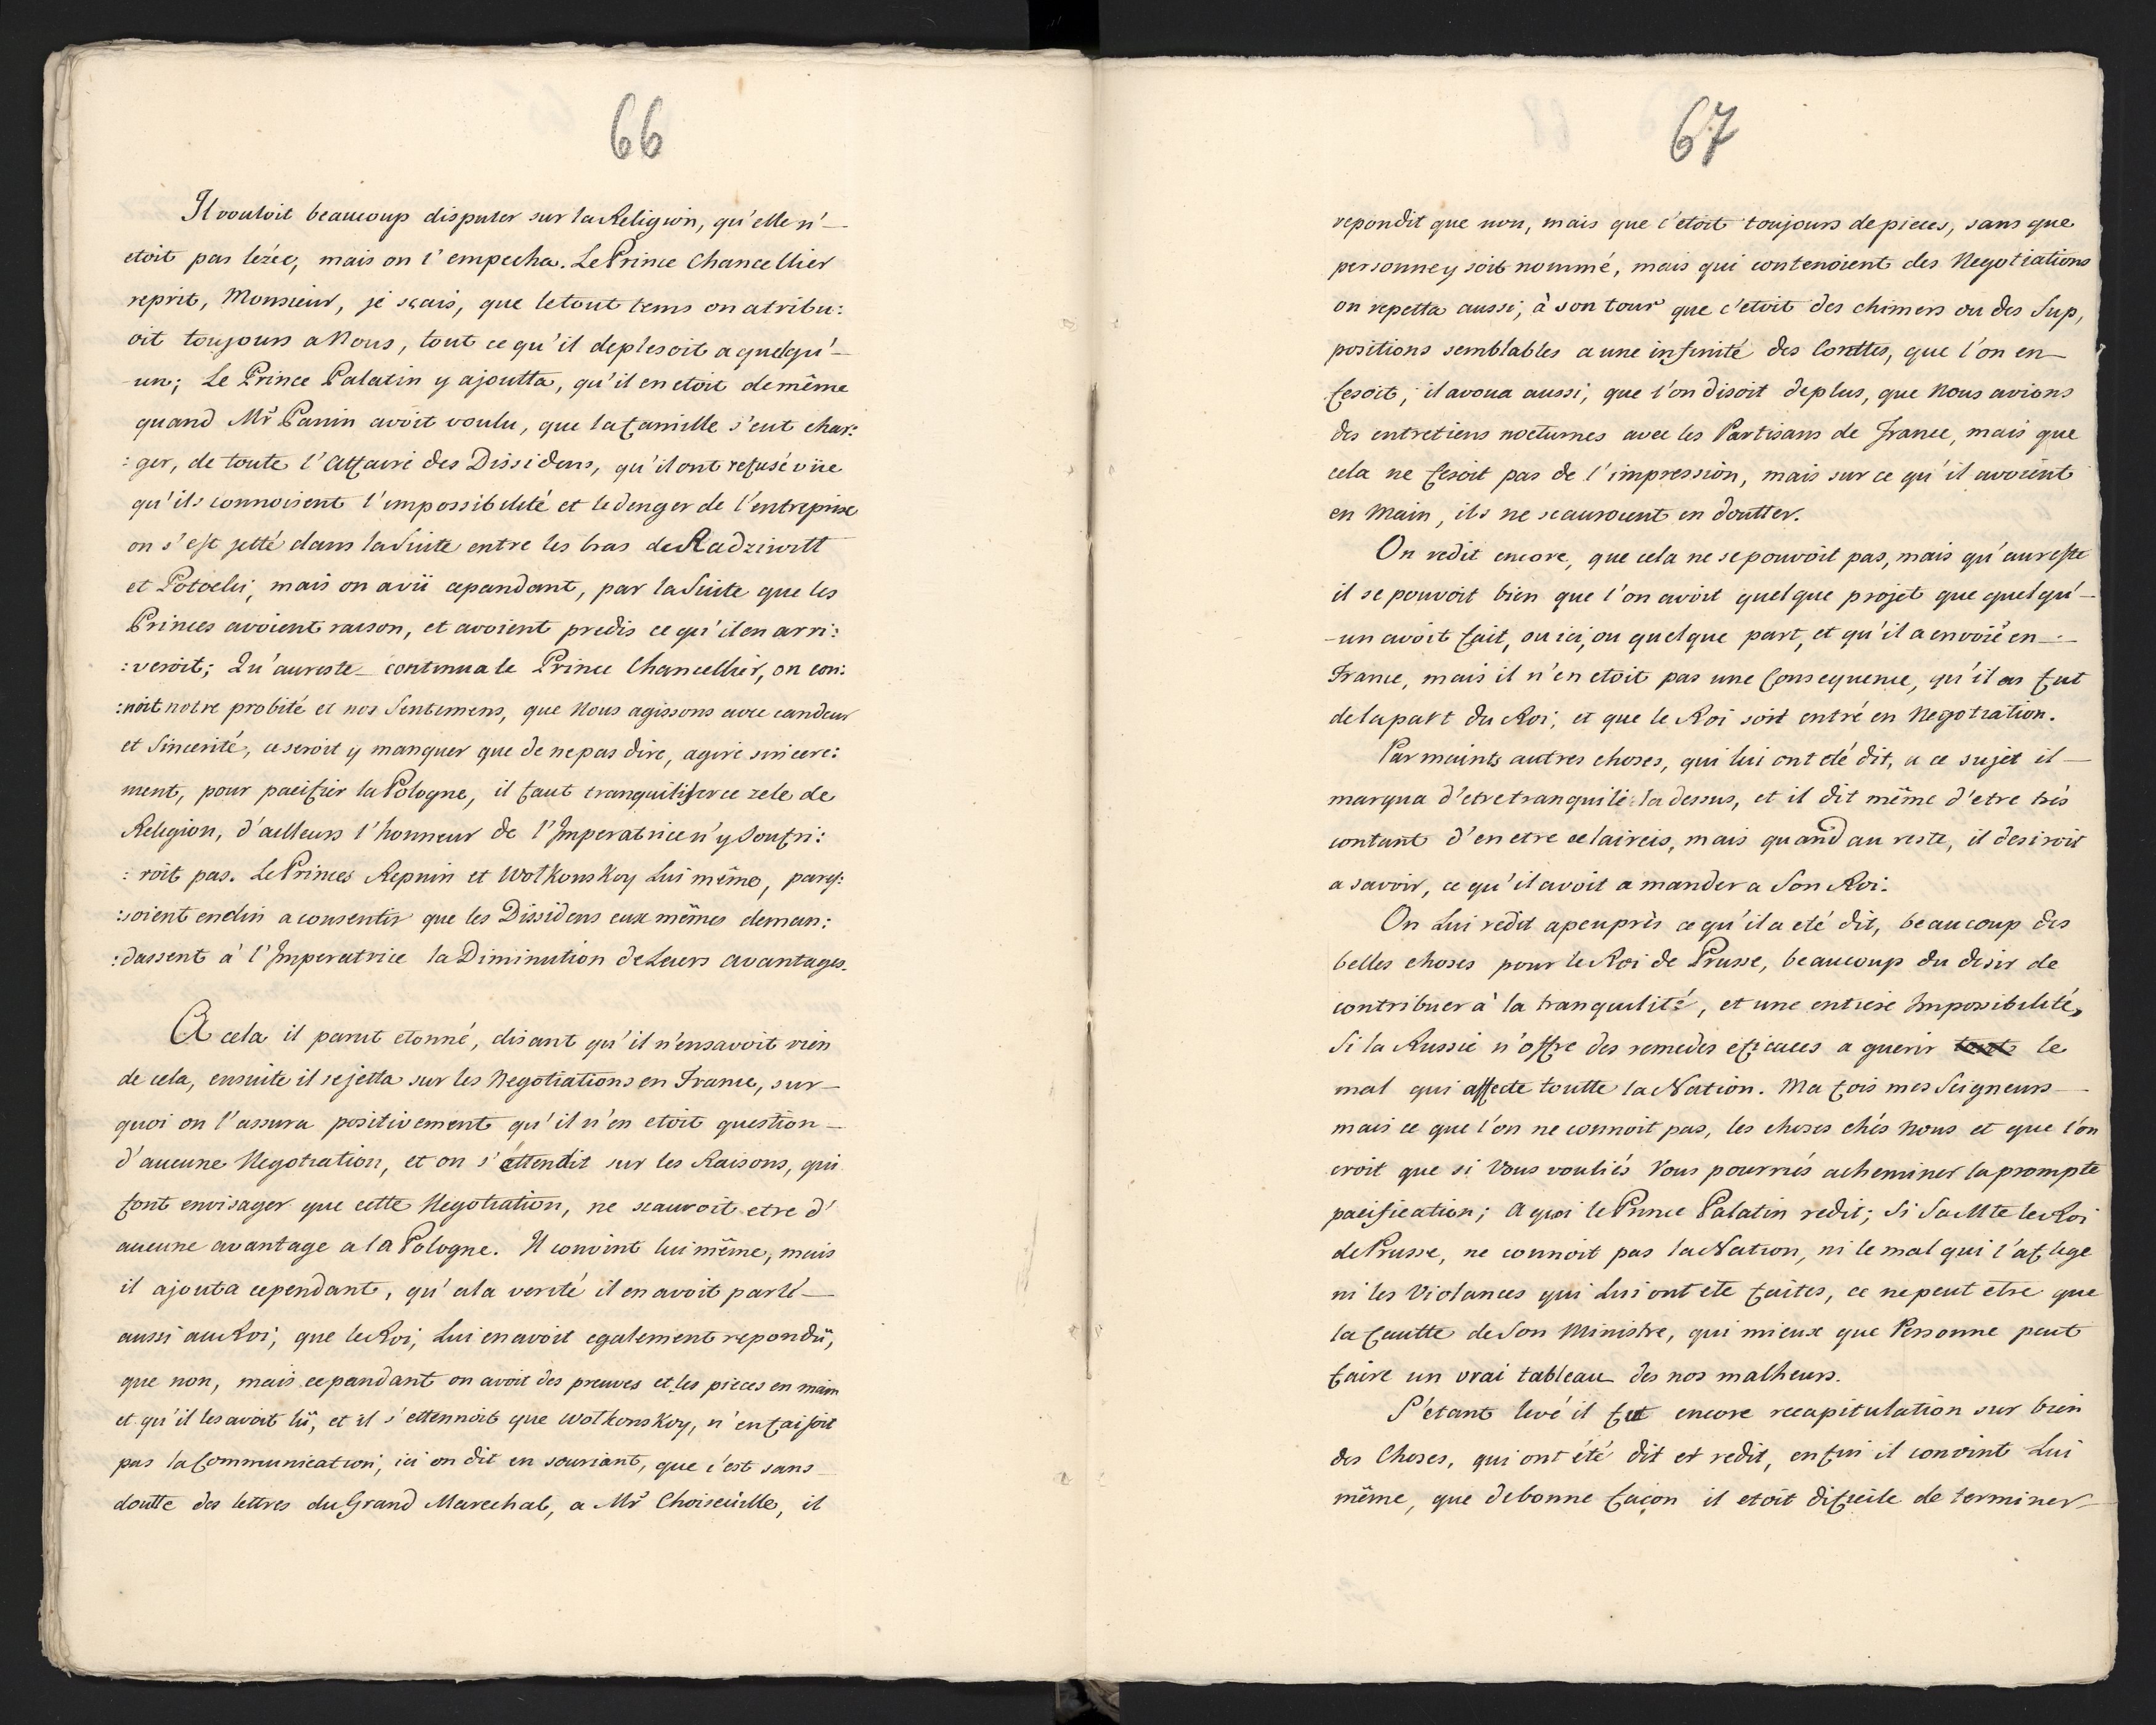 66
Il vouloit beaucoup disputer sur la Religion, qu'elle n'—
etoit pas lézée, mais on l'empecha. Le Prince Chancellier
reprit, Monsieur, je sçais, que le tout tems on atribu:
oit toujours a Nous, tout ce qu'il deplesoit a quelqu'—
-un; Le Prince Palatin y ajoutta, qu'il en etoit de même
quand Mr Panin avoit voulu, que la famille s'eut char:
:ger, de toute l'Affaire des Dissidens, qu'il ont refusé vüe
qu'ils connoisent l'impossibilité et le denger de l'entreprise
on s'est jetté dans la Suite entre les bras de Radziwill
et Potocki, mais on a vü cepandant, par la Suite que les
Princes avoient raison, et avoient predis ce qu'il en arri:
:veroit; Qu'aureste — continua le Prince Chancellier, on con:
:noit notre probité et nos Sentimens, que Nous agissons avec candeur
et Sincerité, ce seroit y manquer que de ne pas dire, agire sincere:
ment, pour pacifier la Pologne, il faut tranquiliser ce zele de
Religion, d'ailleurs l'honneur de l'Imperatrice n'y Soufri:
:roit pas. Le Princes Repnin et Wolkonskoy Lui même, parоs:
:soient enclin a consentir que les Dissidens eux mêmes deman:
:dassent à l'Imperatrice la Diminution de Leurs avantages.
A cela il parut etonné, disant qu'il n'en savoit rien
de cela, ensuite il se jetta sur les Negotiations en France, sur—
quoi on l'assura positivement qu'il n'en etoit question—
d'aucune Negotiation, et on s'éttendit sur les Raisons, qui
font envisager que cette Negotiation, ne scauroit etre d'
aucune avantage a la Pologne. Il convint lui même, mais
il ajouta cependant, qu'ala verité il en avoit parlé—
aussi au Roi, que le Roi, Lui en avoit egalement repondü,
que non, mais cepandant on avoit des preuves et les pieces en main
et qu'il les avoit lü, et il s'ettennoit que Wolkonskoy, n'en faisoit
pas la Communication, ici on dit en souriant, que c'est sans
doutte des lettres du Grand Marechal, a Mr Choiseülle, il
67
repondit que non, mais que c'etoit toujours de pieces, sans que
personne y soit nommé, mais qui contenoient des Negotiations
on repetta aussi, à son tour que c'etoit des chimers ou des Sup,
positions semblables a une infinité des Conttes, que l'on en—
fesoit, il avoua aussi, que l'on disoit deplus, que Nous avions
des entretiens nocturnes avec les Partisans de France, mais que
cela ne fesoit pas de l'impression, mais sur ce qu'il avoient
en Main, ils ne scauroient en doutter.
On redit encore, que cela ne se pouvoit pas, mais qu'aureste
il se pouvoit bien que l'on avoit quelque projet que quelqu'—
-un avoit fait, ou ici, ou quelque part, et qu'il a envoié en—
France, mais il n'en etoit pas une Consequence, qu'il en fut
de la part du Roi, et que le Roi soit entré en Negotiation.
Par maints autres choses, qui lui ont été dit, a ce sujet il—
marqua d'etre tranquile la dessus, et il dit même d'etre trés
contant d'en etre eclaircis, mais quand au reste, il desiroit
a savoir, ce qu'il avoit a mander a Son Roi.
On Lui redit apeuprès ce qu'il a eté dit, beaucoup des
belles choses pour le Roi de Prusse, beaucoup du desir de
contribuer à la tranquilité, et une entiere Impossibilité,
Si la Russie n'offre des remedes eficaces a guerir le
mal qui affecte toutte la Nation. Ma fois mes Seigneurs—
mais ce que l'on ne connoit pas, les choses chés Nous et que l'on
croit que si Vous vouliés Vous pourriés acheminer la prompte
pacification; A quoi le Prince Palatin redit; Si Sa Mte le Roi
de Prusse, ne connoit pas la Nation, ni le mal qui l'aflige
ni les Violances qui Lui ont ete faites, ce ne peut etre que
la fautte de Son Ministre, qui mieux que Personne peut
faire un vrai tableau des nos malheurs.
S'etant levé il fut encore recapitulation sur bien
des Choses, qui ont été dit et redit, enfin il convint Lui
même, que de bonne façon il etoit dificile de terminer